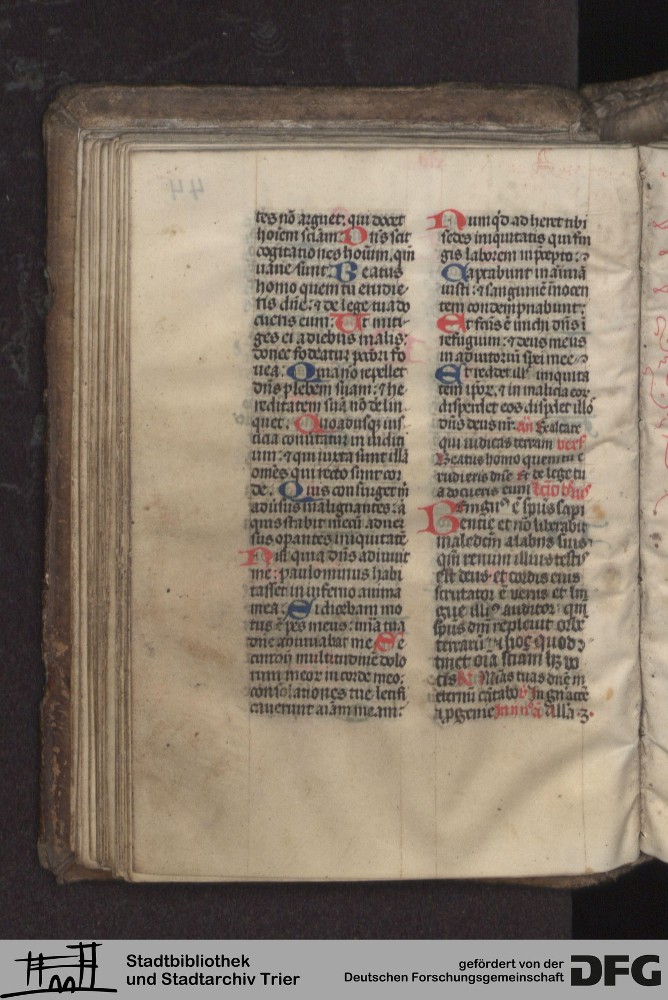 tes nō arguet: qui docet
hoīem sciām: Dn̄s scit
cogitationes hoīum, qm̄
uane sunt: Beatus
homo quem tu erudie
ris dn̄e: & de lege tua do
cueris eum: Ut miti
ges ei a diebus malis:
donec fodeatur pctōri fo
uea: Quia nō repellet
dn̄s plebem suam: & he
reditatem suā nō de lin
quet. Quoadusqʒ ius
ticia conuertatur in iudici
um: & qui iuxta illā
omēs qui recto sunt cor
de. Quis consurget m̄
aduersus malignantes: a
quis stabit mecū aduer
sus operantes iniquitatē
Nisi quia dn̄s adiuuit
me: paulominus habi
tasset in inferno anima
mea: Si dicebam mo
tus ē pes meus: mīa tua
dn̄e adiuuabat me Se
cundū multitudinē dolo
rum meor in corde meo:
consolationes tue letifi
cauerunt aīam meam:
Numqd adheret tibi
sedes iniquitatis qui fin
gis laborem in p̄cepto:
Captabunt in aīmā
iusti: & sanguinē īnocen
tem condempnabunt:
Et factus ē michi dn̄s ī
refugium: & deus meus
in adiutoriū spei mee
Et reddet ill' iniquita
tem ipor̄: & in malicia eor
disperdet eos dispdet illos
dn̄s deus nr̄. añ Exaltare
qui iudicas terram vers
Beatus homo quem tu e
rudieris dn̄e Et de lege tu
a docueris eum
Benignus ē spūs sapi
entie et nō liberabit
maledictum a labiis suis
qm̄ renum illius testis
est deus et cordis eius
scrutator ē verus et lin
gue illius auditor qm̄
spūs dn̄i repleuit orbē
terrarū & hoc quod
tinet oīa sciam hʒ vo
cis R Mīas tuas dn̄e in
eternū cātabo In gn̄acōe
& pgenie Alla
44
Stadtbibliothek
und Stadtarchiv Trier
gefördert von der
Deutschen Forschungsgemeinschaft
DFG